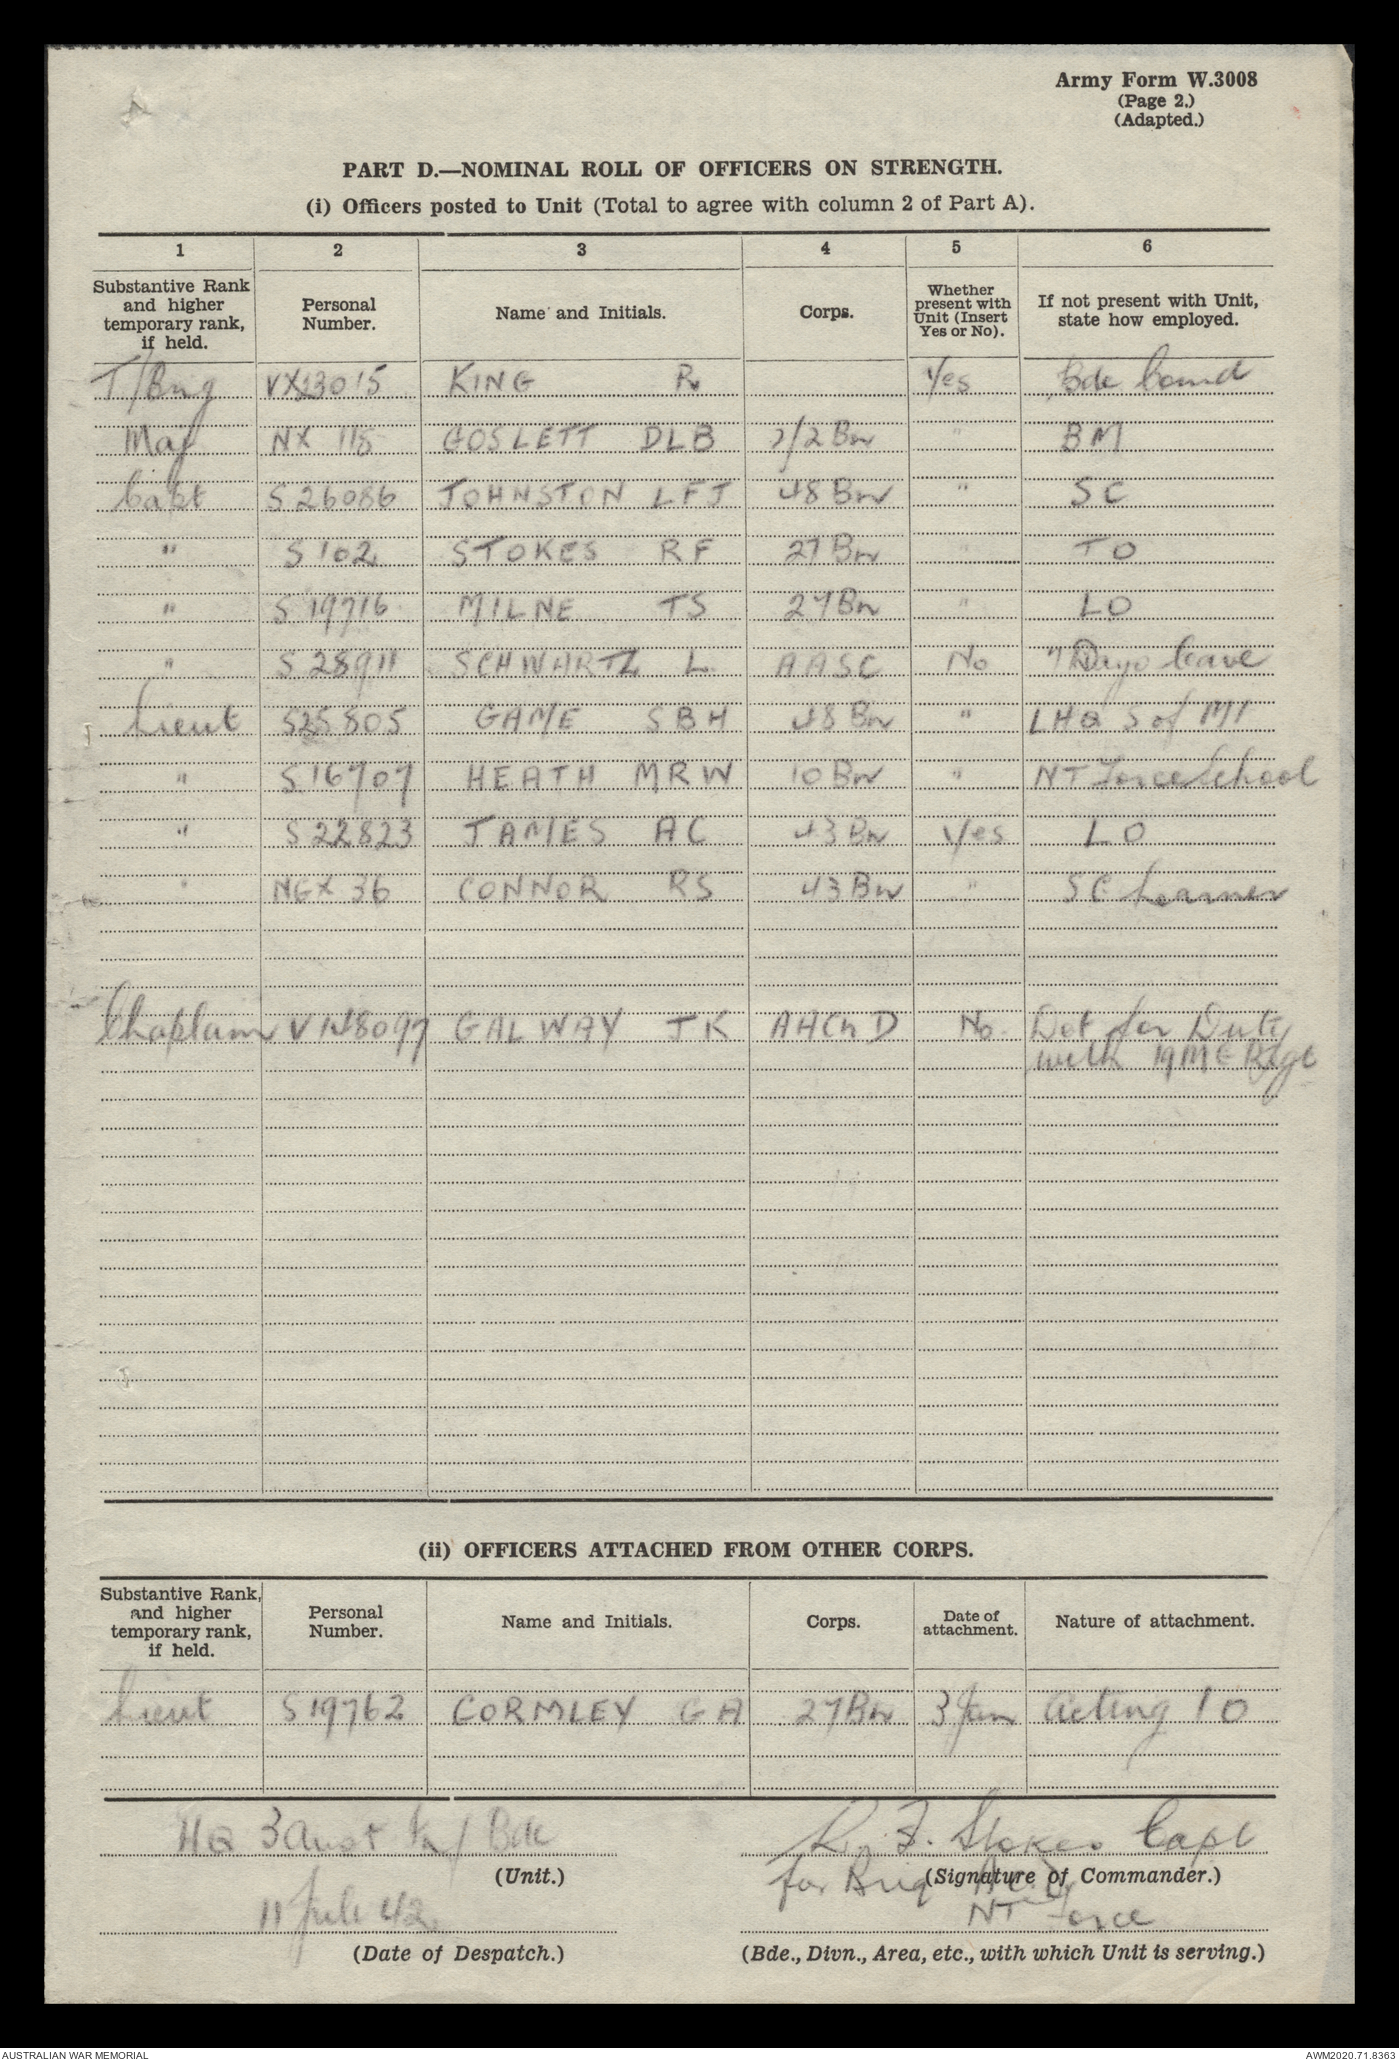 Army Form W.3008
(Page 2.)
(Adapted.)
PART D.—NOMINAL ROLL OF OFFICERS ON STRENGTH.
(i) Officers posted to Unit (Total to agree with column 2 of Part A).
1 2 3 4 5 6
Substantive Rank and higher temporary rank, if held. Personal Number. Name and Initials. Corps. Whether present with Unit (Insert Yes or No). If not present with Unit, state how employed.
T/Brig VX13015 KING R. Yes Bde Comd
Maj NX 118 GOSLETT DLB 2/2 Bn " BM
Capt S 26086 JOHNSTON LFJ 48 Bn " SC
" S 102 STOKES RF 27 Bn " TO
" S 19716 MILNE TS 27 Bn " LO
" S 28911 SCHWARTZ L. AASC No 7 Days leave
Lieut S25805 GAME SBH 48 Bn " LHQ S of MI
" S 16707 HEATH MRW 10 Bn " NT Force School
" S 22823 JAMES AC 43 Bn Yes LO
" NGX 36 CONNOR RS 43 Bn " SC Learner
Chaplain V148097 GALWAY JK AACh D No. Det for Duty
with 19 MG Regt
(ii) OFFICERS ATTACHED FROM OTHER CORPS.
Substantive Rank, and higher temporary rank, if held. Personal Number. Name and Initials. Corps. Date of attachment. Nature of attachment.
Lieut S 19762 CORMLEY GA 27 Bn 3 Jun Acting IO
HQ 3 Aust Bde R. F. Stokes Capt
(Unit.) for Brig (Signature of Commander.)
11 Jul 42 NT Force
(Date of Despatch.) (Bde., Divn., Area, etc., with which Unit is serving.)
AUSTRALIAN WAR MEMORIAL AWM2020.71.8363